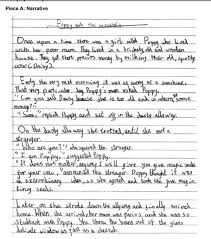 Piece A: Narrative
Poppy and the beanstalk
Once upon a time there was a girl called Poppy. She lived
with her poor mum. They lived in a old wooden
house. They got there money by milking their old,
cow (Daisy).
Early the very next morning it was as sunny as a sunshine.
That very particular day Poppy's mum asked Poppy,
"Can you sell Daisy because she is too old and in other, some
money?"
"Sure," replied Poppy and set off in the dusty alleyway.
On the dusty alleyway she trotted, until she met a
stranger.
"Who are you?" the stranger.
"I am Poppy," Poppy.
"It does not matter, anyway I will give you magic seeds
for your cow," the stranger. Poppy thought it was
extraordinary idea, so she agreed and took the five magic
seeds.
Later on she strode down the alleyway and finally arrived
home. When she arrived her mum was furious and she was so
with Poppy. She threw the beans out of the glass
window as fast as a cheetah.